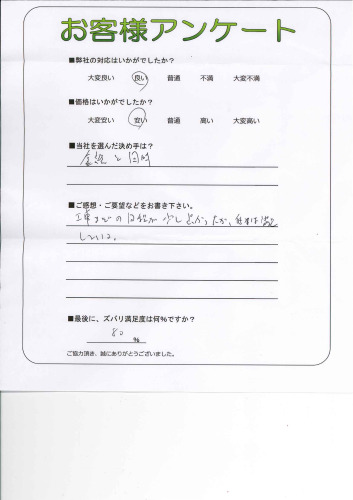 お客様アンケート
■弊社の対応はいかがでしたか?
大変良い 良い 普通 不満 大変不満
■価格はいかがでしたか?
大変安い 安い 普通 高い 大変高い
■当社を選んだ決め手は?
金額と
■ご感想・ご要望などをお書き下さい。
工事までの日程が少し長かったが、
している。
■最後に、ズバリ満足度は何%ですか?
80 %
ご協力頂き、誠にありがとうございました。